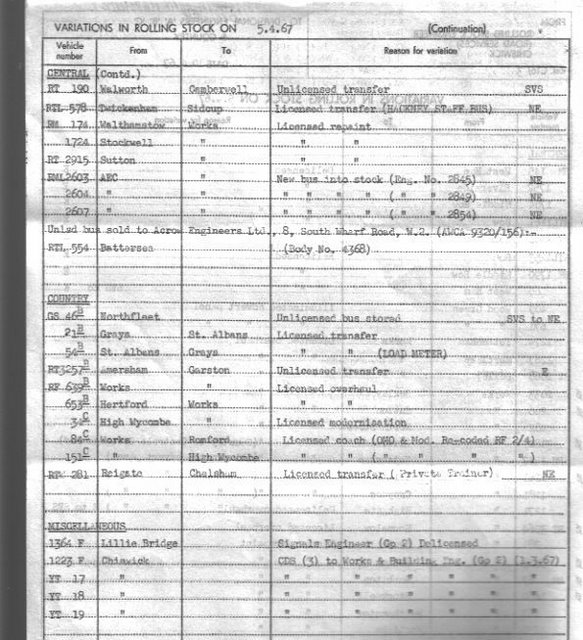 VARIATIONS IN ROLLING STOCK ON 5.4.67 (Continuation)
Vehicle number From To Reason for variation
CENTRAL (Contd.)
RT 190 Walworth Camberwell Unlicensed transfer SVS
RTL 578 Twickenham Sidcup Licensed transfer (HACKNEY STAFF BUS) NE
RM 174 Walthamstow Works Licensed repaint
1724 Stockwell " " "
RT 2915 Sutton " " "
RML2603 AEC " New bus into stock (Eng. No. 2845) NE
2604 " " " " " " ( " " 2849) NE
2607 " " " " " " ( " " 2854) NE
Unlsd bus sold to Acrow Engineers Ltd., 8, South Wharf Road, W.2. (AWCA 9320/156):-
RTL 554 Battersea (Body No. 4368)
COUNTRY
GS 46B Northfleet Unlicensed bus stored SVS to NE
21B Grays St. Albans Licensed transfer
54B St. Albans Grays " " (LOAD METER)
RT3257B Amersham Garston Unlicensed transfer E
RF 639B Works " Licensed overhaul
653B Hertford Works " "
34C High Wycombe " Licensed modernisation
84C Works Romford Licensed coach (OMO & Mod. Re-coded RF 2/4)
151C " High Wycombe " " ( " " " " ")
281 Reigate Chelsham Licensed transfer ( Private Trainer) NE
MISCELLANEOUS
1364 F Lillie Bridge Signals Engineer (Gp 2) Delicensed
1223 F Chiswick CDS (3) to Works & Building Eng. (Gp 2) (1.3.67)
YT 17 " " " " " " "
YT 18 " " " " " " "
YT 19 " " " " " " "